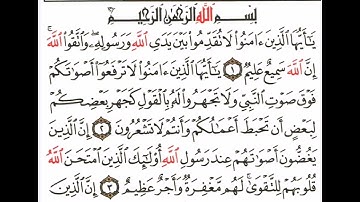 بِسْمِ اللَّهِ الرَّحْمَٰنِ الرَّحِيمِ
يَٰٓأَيُّهَا الَّذِينَ ءَامَنُوا۟ لَا تُقَدِّمُوا۟ بَيْنَ يَدَيِ اللَّهِ وَرَسُولِهِۦ ۖ وَاتَّقُوا۟ اللَّهَ ۚ
إِنَّ اللَّهَ سَمِيعٌ عَلِيمٌ ١ يَٰٓأَيُّهَا الَّذِينَ ءَامَنُوا۟ لَا تَرْفَعُوٓا۟ أَصْوَٰتَكُمْ
فَوْقَ صَوْتِ النَّبِيِّ وَلَا تَجْهَرُوا۟ لَهُۥ بِالْقَوْلِ كَجَهْرِ بَعْضِكُمْ
لِبَعْضٍ أَن تَحْبَطَ أَعْمَٰلُكُمْ وَأَنتُمْ لَا تَشْعُرُونَ ٢ إِنَّ الَّذِينَ
يَغُضُّونَ أَصْوَٰتَهُمْ عِندَ رَسُولِ اللَّهِ أُو۟لَٰٓئِكَ الَّذِينَ امْتَحَنَ اللَّهُ
قُلُوبَهُمْ لِلتَّقْوَىٰ ۚ لَهُم مَّغْفِرَةٌ وَأَجْرٌ عَظِيمٌ ٣ إِنَّ الَّذِينَ